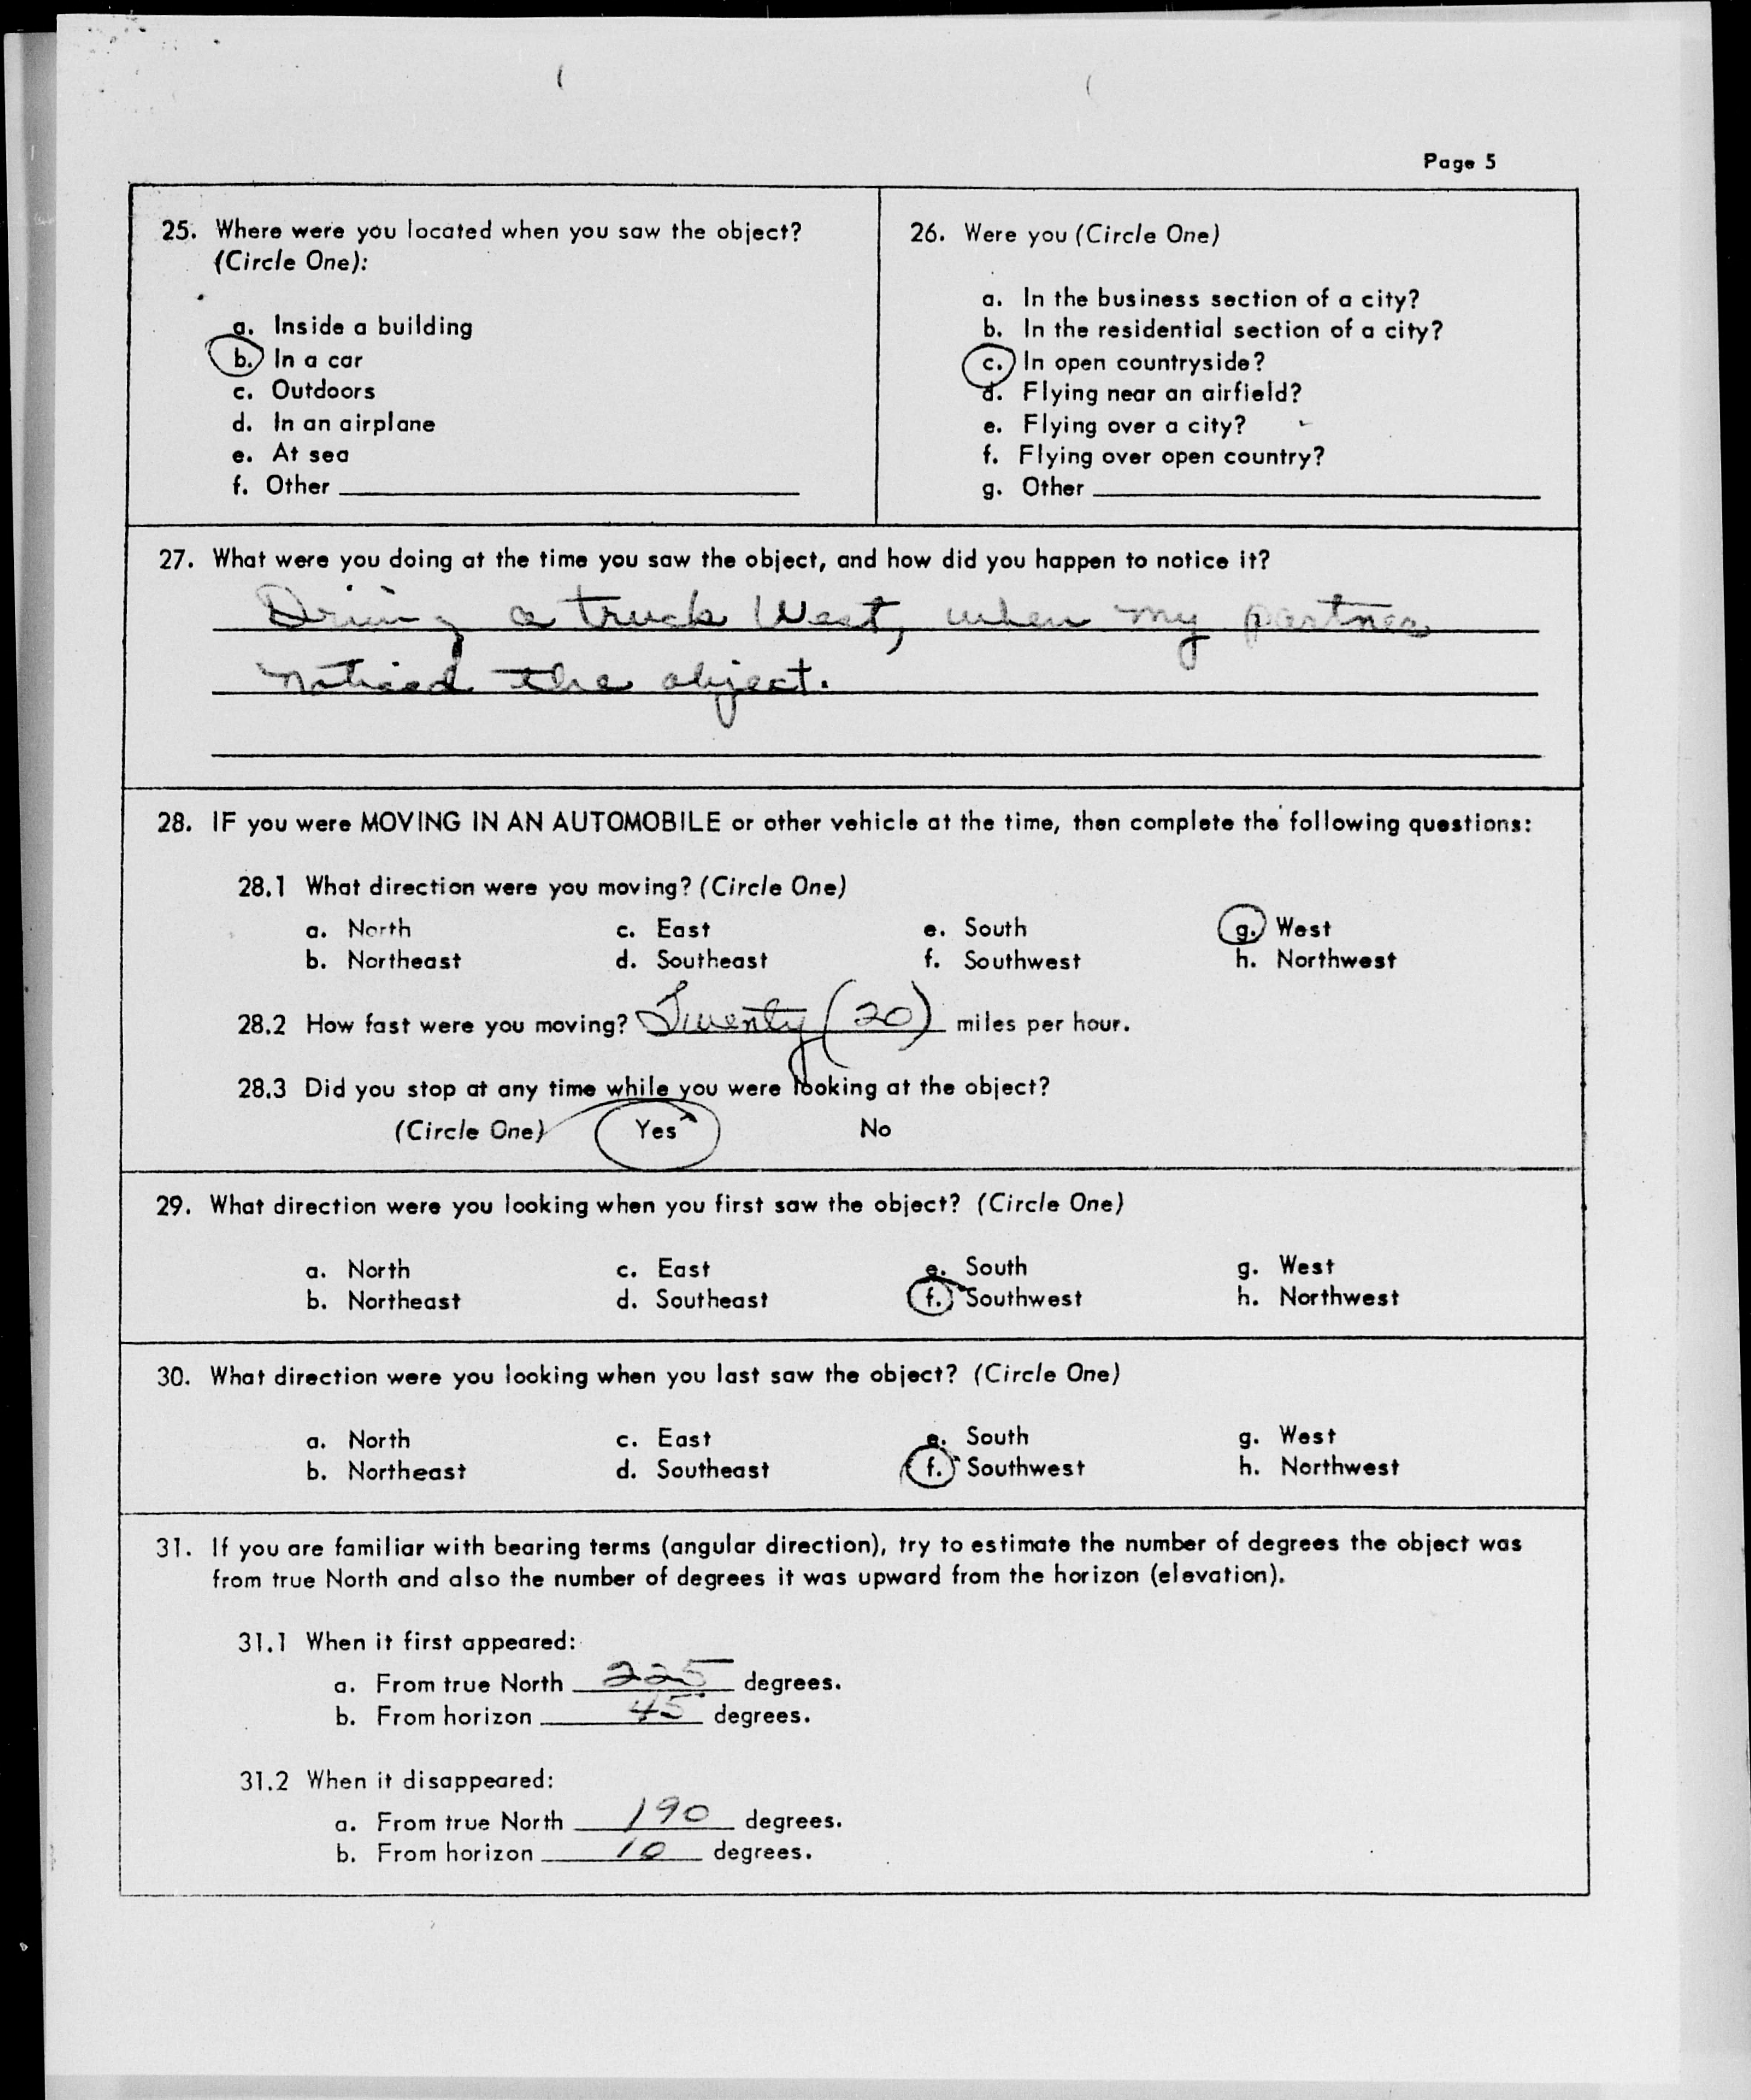 Page 5
25. Where were you located when you saw the object?
(Circle One):
a. Inside a building
b. In a car
c. Outdoors
d. In an airplane
e. At sea
f. Other
26. Were you (Circle One)
a. In the business section of a city?
b. In the residential section of a city?
c. In open countryside?
d. Flying near an airfield?
e. Flying over a city?
f. Flying over open country?
g. Other
27. What were you doing at the time you saw the object, and how did you happen to notice it?
Driving a truck West, when my partner
noticed the object.
28. IF you were MOVING IN AN AUTOMOBILE or other vehicle at the time, then complete the following questions:
28.1 What direction were you moving? (Circle One)
a. North c. East e. South g. West
b. Northeast d. Southeast f. Southwest h. Northwest
28.2 How fast were you moving? Twenty (20) miles per hour.
28.3 Did you stop at any time while you were looking at the object?
(Circle One) Yes No
29. What direction were you looking when you first saw the object? (Circle One)
a. North c. East e. South g. West
b. Northeast d. Southeast f. Southwest h. Northwest
30. What direction were you looking when you last saw the object? (Circle One)
a. North c. East e. South g. West
b. Northeast d. Southeast f. Southwest h. Northwest
31. If you are familiar with bearing terms (angular direction), try to estimate the number of degrees the object was
from true North and also the number of degrees it was upward from the horizon (elevation).
31.1 When it first appeared:
a. From true North 225 degrees.
b. From horizon 45 degrees.
31.2 When it disappeared:
a. From true North 190 degrees.
b. From horizon 10 degrees.